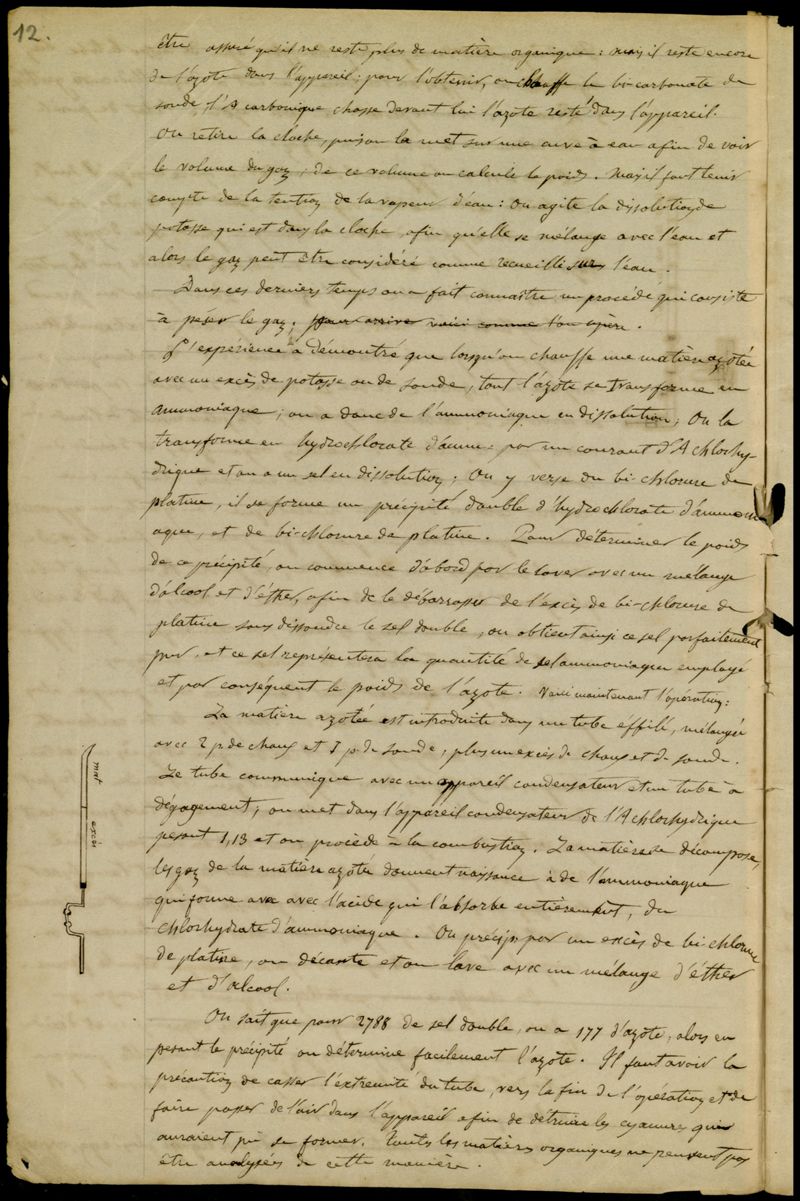 12.
être assuré qu'il ne reste plus de matière organique : mais il reste encore
de l'azote dans l'appareil ; pour l'obtenir, on chauffe le bi-carbonate de
soude, l'A carbonique chasse devant lui l'azote resté dans l'appareil.
On retire la cloche, puis on la met sur une cuve à eau afin de voir
le volume du gaz, de ce volume on calcule le poids. Mais il faut tenir
compte de la tention de la vapeur d'eau : On agite la dissolution de
potasse qui est dans la cloche, afin qu'elle se mélange avec l'eau et
alors le gaz peut être considéré comme recueilli sur l'eau.
Dans ces derniers temps on a fait connaître un procédé qui consiste
à peser le gaz ; pour arriver voici comme l'on opère.
L'expérience a démontré que lorsqu'on chauffe une matière azotée
avec un excès de potasse ou de soude, tout l'azote se transforme en
ammoniaque ; on a donc de l'ammoniaque en dissolution ; On la
transforme en hydrochlorate d'amm : par un courant d'A chlorhy-
drique et on a un sel en dissolution ; On y verse du bi-chlorure de
platine, il se forme un précipité double d'hydrochlorate d'ammoni
aque, et de bi-chlorure de platine. Pour déterminer le poids
de ce précipité, on commence d'abord par le laver avec un mélange
d'alcool et d'éther, afin de le débarrasser de l'excès de bi-chlorure de
platine sans dissoudre le sel double, on obtient ainsi ce sel parfaitement
pur, et ce sel représentera la quantité de sel ammoniaque employé
et par conséquent le poids de l'azote. Voici maintenant l'opération :
La matière azotée est introduite dans un tube effilé, mélangée
avec 2 p. de chaux et 1 p. de soude, plus un excès de chaux et de soude.
Le tube communique avec un appareil condensateur et un tube à
dégagement, on met dans l'appareil condensateur de l'A chlorhydrique
pesant 1,13 et on procède à la combustion. La matière se décompose,
les gaz de la matière azotée donnent naissance à de l'ammoniaque
qui forme avec l'acide qui l'absorbe entièrement, du
chlorhydrate d'ammoniaque. On précip. par un excès de bi-chlorure
de platine, on décante et on lave avec un mélange d'éther
et d'alcool.
mat excès
On sait que pour 2788 de sel double, on a 177 d'azote, alors en
pesant le précipité on détermine facilement l'azote. Il faut avoir la
précaution de casser l'extrémité du tube, vers la fin de l'opération et de
faire passer de l'air dans l'appareil afin de détruire les cyanures qui
auraient pu se former. Toutes les matières organiques ne peuvent pas
être analysées de cette manière.